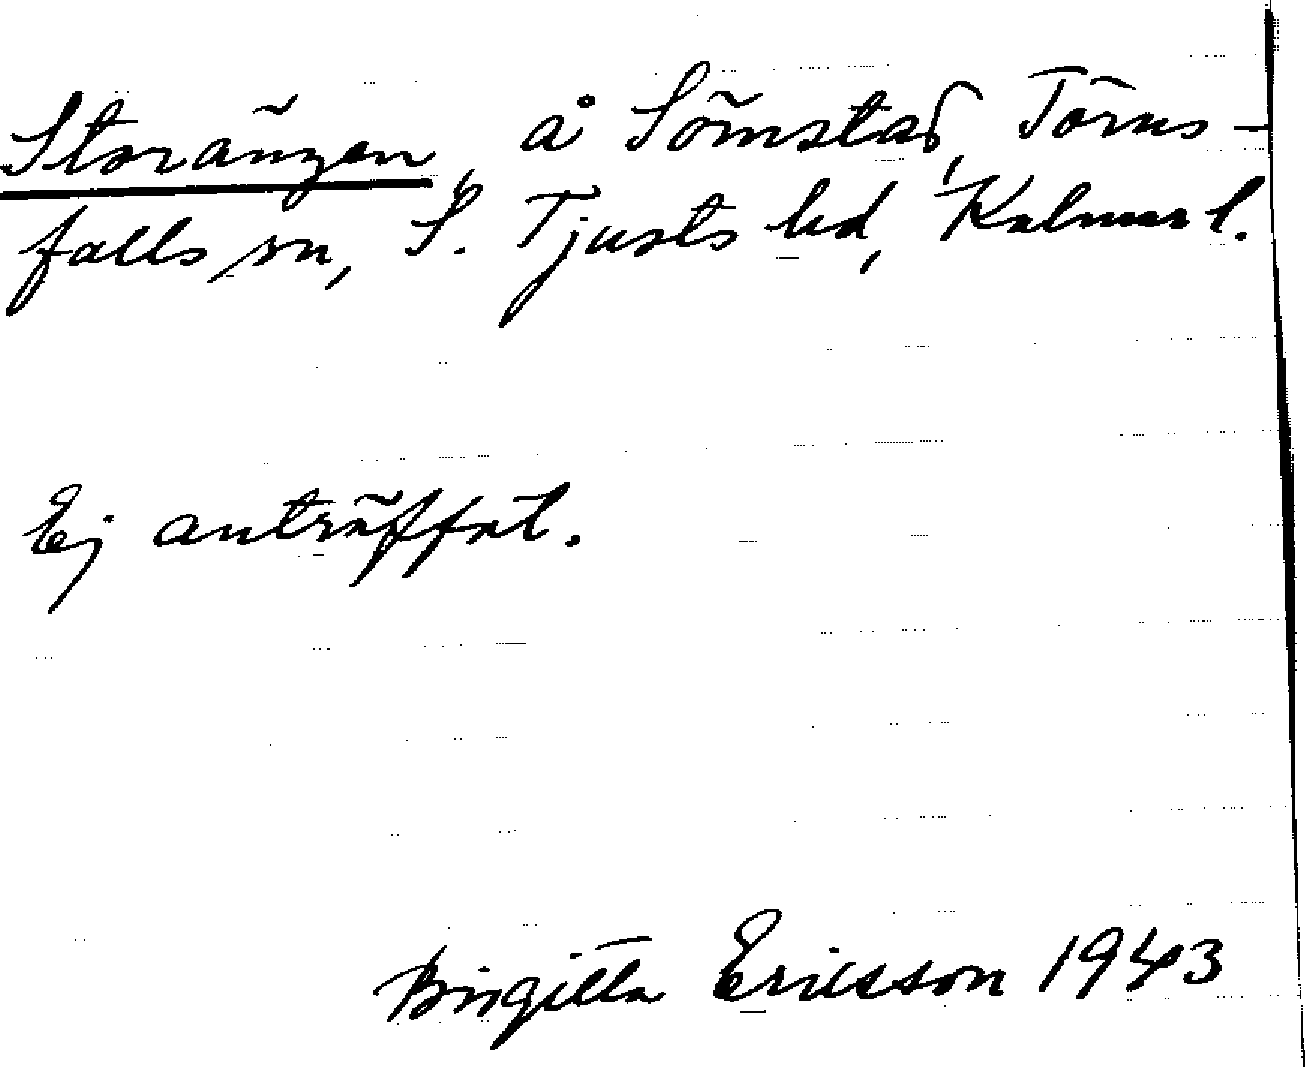 Storängen, å Sömstad, Törns-
falls sn, S. Tjusts hd, Kalmar l.
Ej anträffat.
Birgitta Ericsson 1943